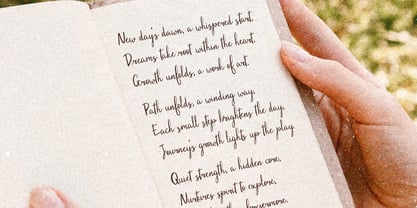 New day's dawn, a whispered start,
Dreams take root within the heart,
Growth unfolds, a work of art.
Path unfolds, a winding way,
Each small step brightens the day,
Journey's growth lights up the play.
Quiet strength, a hidden core,
Nurtures spirit to explore,